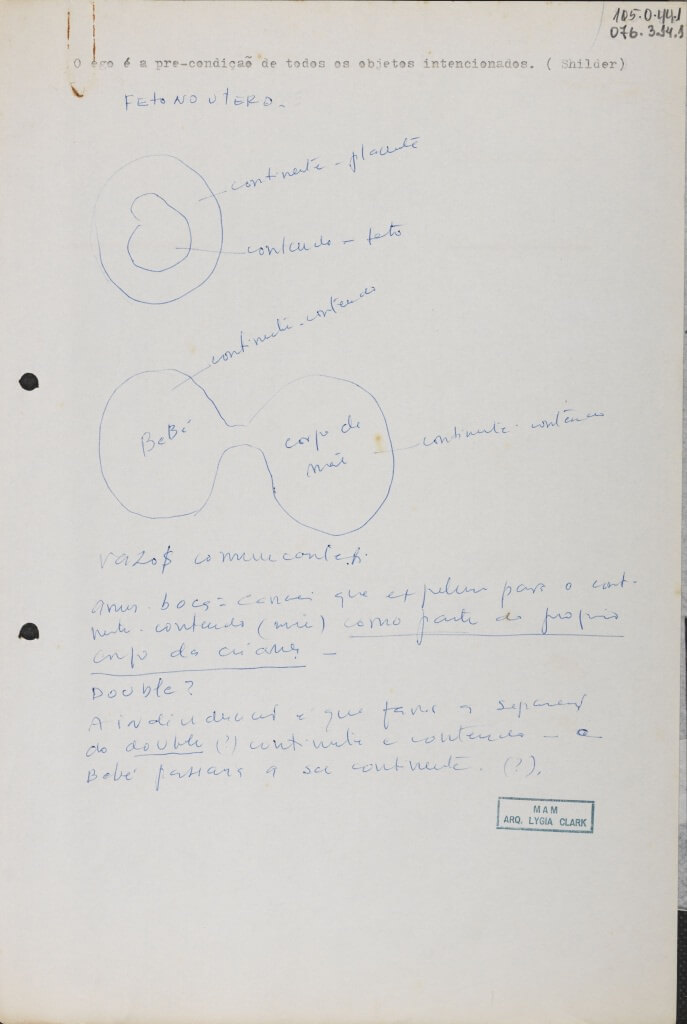 105.0.44.1
076.3.14.1
O ego é a pre-condição de todos os objetos intencionados. ( Shilder)
FETO NO UTERO.
continente - placenta
conteudo - feto
continente - conteudo
BeBé
corpo da
mãe
continente - conteudo
vazos comunicantes.
anus - boca = canais que expelem para o conti-
nente - conteudo (mãe) como parte do proprio
corpo da criança -
Double?
A individuação é que faria a separação
do double (?) continente e conteudo - o
Bebé passara a ser continente. (?).
MAM
ARQ. LYGIA CLARK